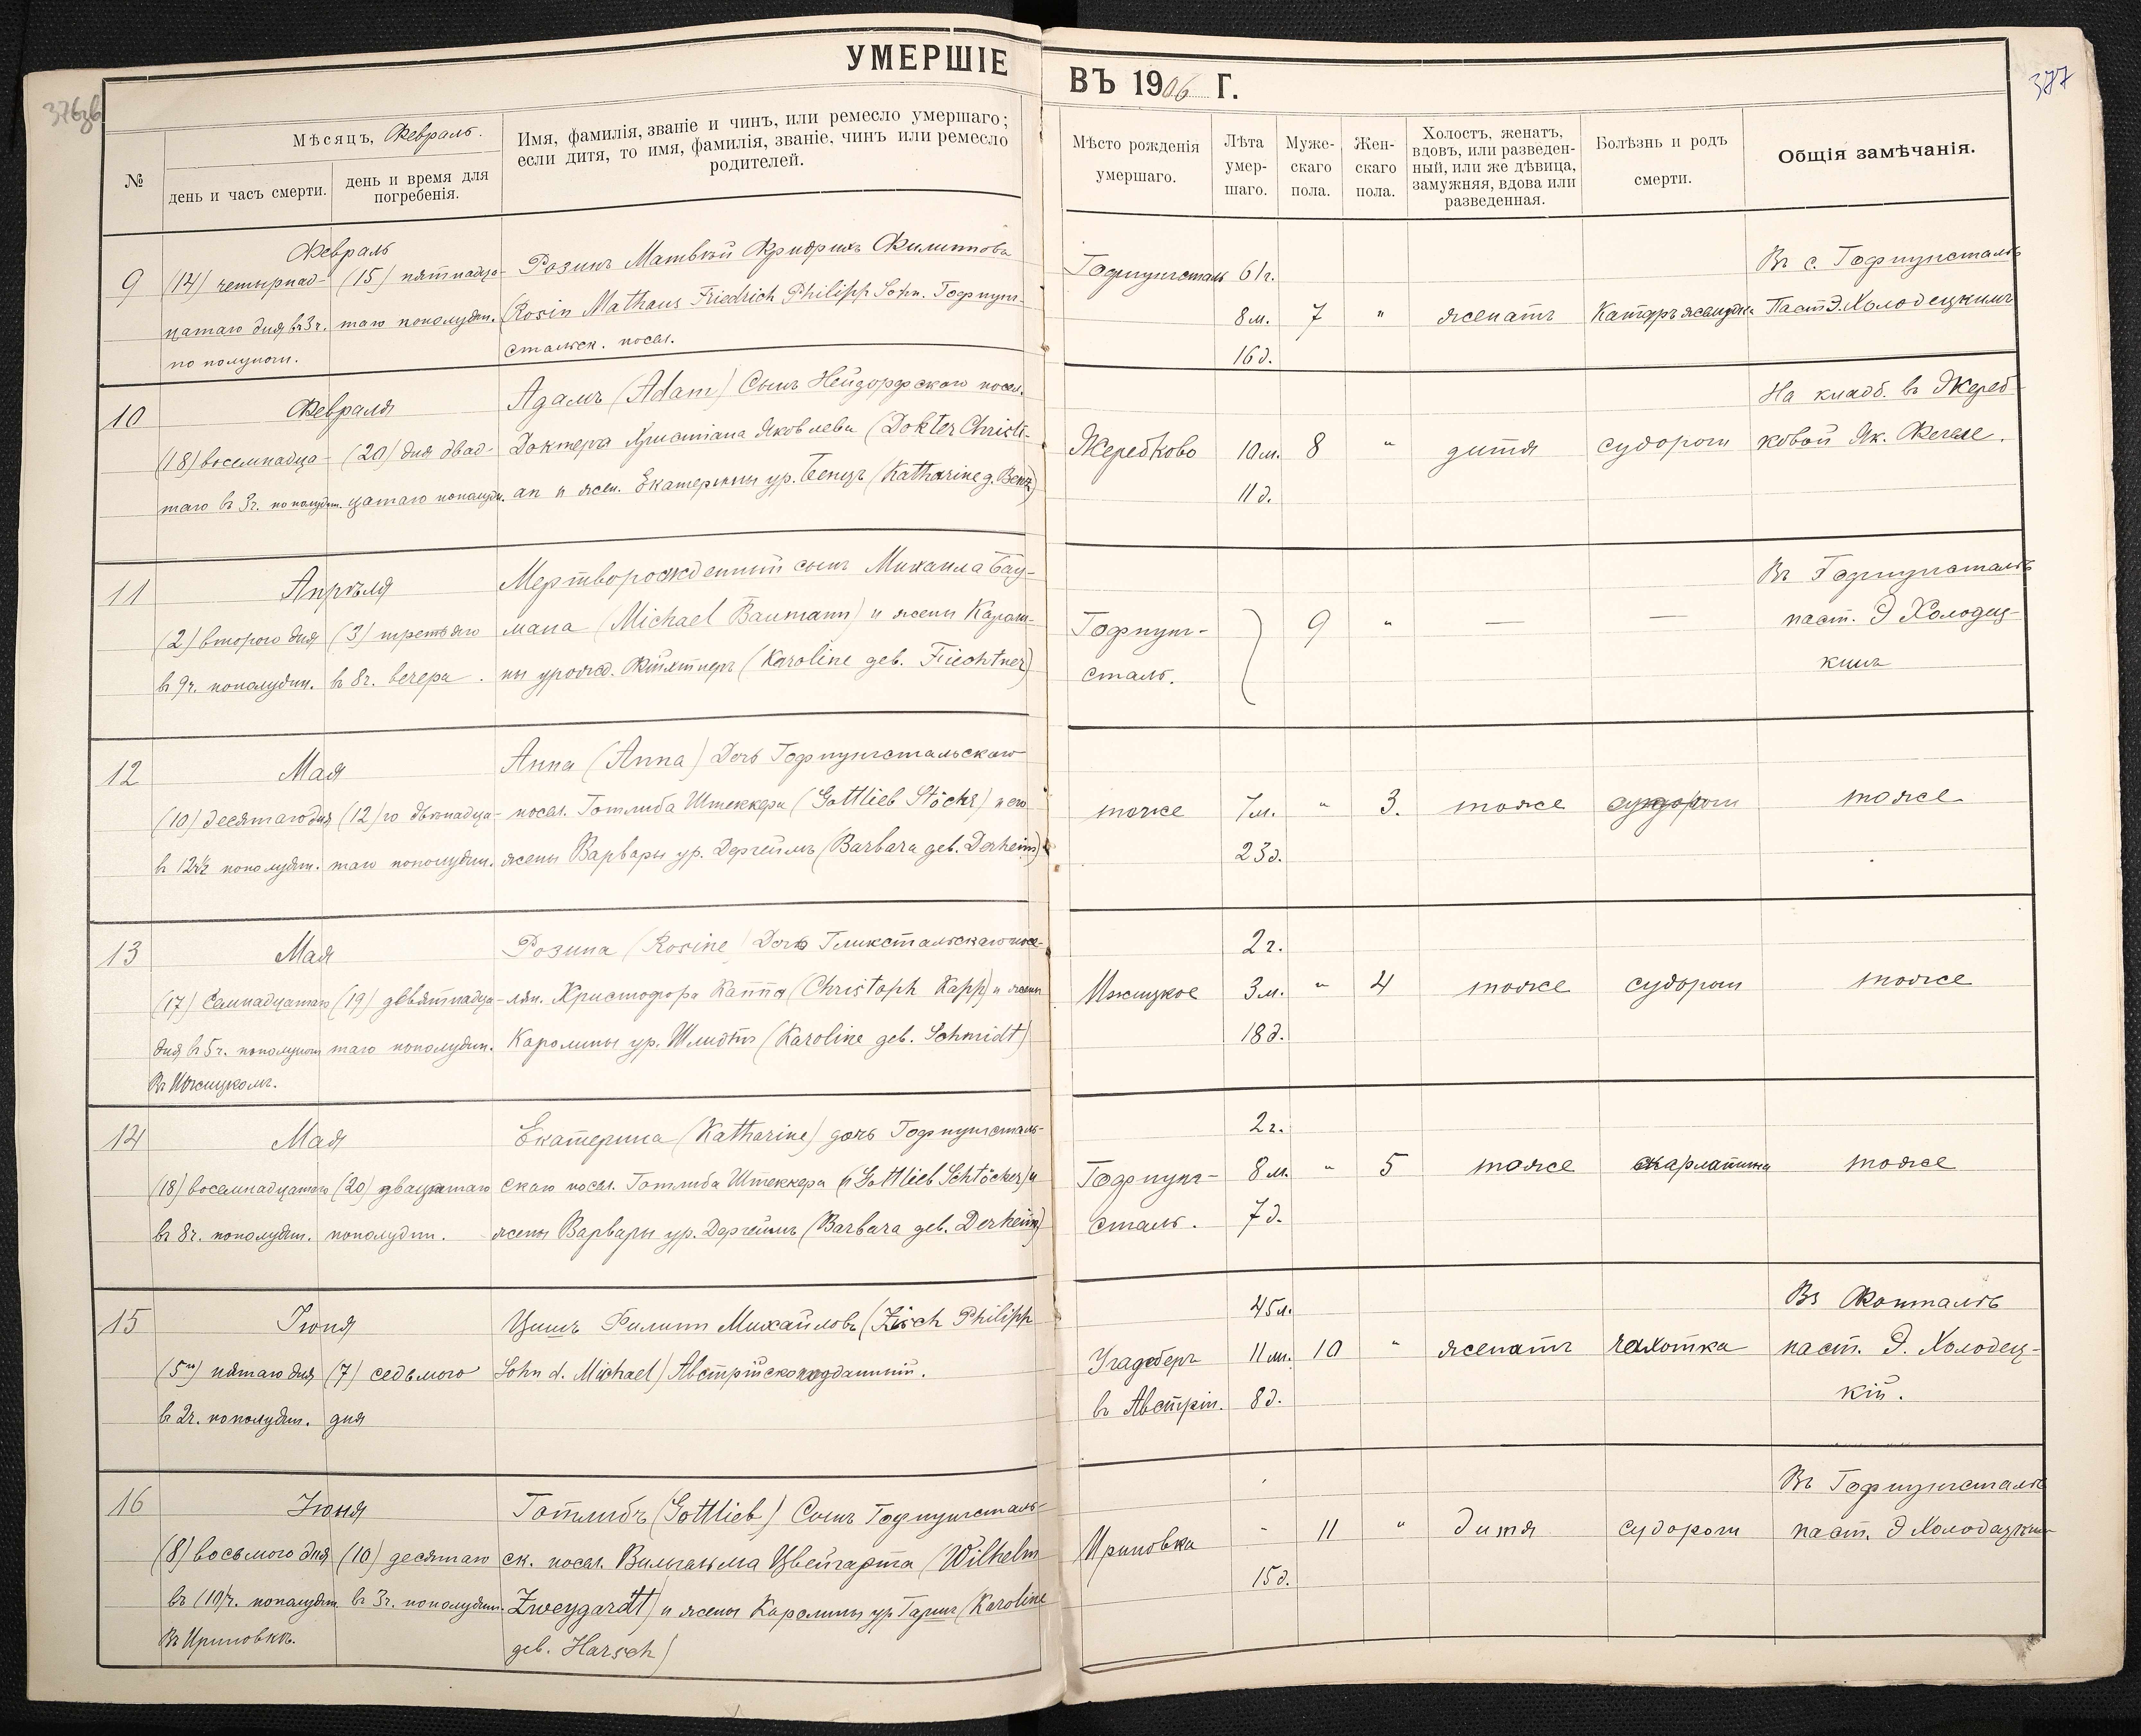 376зв
377
УМЕРШІЕ ВЪ 1906 Г.
№
Мѣсяцъ, Февраль.
день и часъ смерти.
день и время для погребенія.
Имя, фамилія, званіе и чинъ, или ремесло умершаго;
если дитя, то имя, фамилія, званіе, чинъ или ремесло
родителей.
Мѣсто рожденія
умершаго.
Лѣта
умер-
шаго.
Муже-
скаго
пола.
Жен-
скаго
пола.
Холостъ, женатъ,
вдовъ, или разведен-
ный, или же дѣвица,
замужняя, вдова или
разведенная.
Болѣзнь и родъ
смерти.
Общія замѣчанія.
9
Февраль
(14) четырнад-
цатаго дня в 3 ч.
по полуночи.
(15) пятнадца-
таго пополудни.
Розинъ Матвѣй Фридрихъ Филипповъ
(Rosin Mathaus Friedrich Philipp Sohn. Гофнунг-
стальск. посел.
Гофнунгсталь
61 г.
8 м.
16 д.
7
"
женатъ
Катаръ желудка
Въ с. Гофнунгсталь
Паст Э. Холодецкимъ
10
Февраля
(18) восемнадца-
таго въ 3 ч. пополудн.
(20) дня двад-
цатаго пополудн.
Адамъ (Adam) Сынъ Нейдорфскаго посел.
Доктера Христіана Яковлева (Dokter Christi-
an и жен. Екатерины ур. Бенцъ (Katharine g. Benz)
Жеребково
10 м.
11 д.
8
"
дитя
судороги
На кладб. въ Жереб-
ковой Як. Фегеле.
11
Апрѣля
(2) второго дня
в 9 ч. пополудни.
(3) третьяго
в 8 ч. вечера.
Мертворожденный сынъ Михаила Бау-
мана (Michael Baumann) и жены Кароли-
ны урожд. Фіхтнеръ (Karoline geb. Fiechtner)
Гофнунг-
сталь.
9
"
—
—
Въ Гофнунгсталѣ
паст. Э Холодец-
кимъ
12
Мая
(10) десятаго дня
в 12 ч. пополудни.
(12) го двѣнадца-
таго пополудни.
Анна (Anna) Дочь Гофнунгстальскаго
посел. Готлиба Штеккера (Gottlieb Stöckr) и его
жены Варвары ур. Дергеймъ (Barbara geb. Derheim)
тоже
7 м.
23 д.
"
3.
тоже
судороги
тоже
13
Мая
(17) Семнадцатаго
дня в 5 ч. пополуноч
Въ Ижицкомъ.
(19) девятнадца-
таго пополудни.
Розина (Rosine) Дочь Гликстальскаго посе-
лян. Христофора Каппа (Christoph Kapp) и жены
Каролины ур. Шмидтъ (Karoline geb. Schmidt)
Ижицкое
2 г.
3 м.
18 д.
"
4
тоже
судороги
тоже
14
Мая
(18) восемнадцатаго
в 8 ч. пополудни.
(20) двацатаго
пополудни.
Екатерина (Katharine) дочь Гофнунгсталь-
скаго посел. Готлиба Штеккера (Gottlieb Schtöcker) и
жены Варвары ур. Дергеймъ (Barbara geb. Derheim)
Гофнунг-
сталь.
2 г.
8 м.
7 д.
"
5
тоже
скарлатина
тоже
15
Іюня
(5го) пятаго дня
в 2 ч. пополудни.
(7) седьмого
дня
Цишъ Филипп Михайловъ (Zisch Philipp
Sohn d. Michael) Австрійскоподданный.
Угадоберг
въ Австріи.
45 л.
11 м.
8 д.
10
"
женатъ
чахотка
Въ Фонталѣ
паст. Э. Холодец-
кій.
16
Іюня
(8) восьмого дня
въ (10) ч. пополудн.
Въ Ириновкѣ.
(10) десятаго
въ 3 ч. пополудни.
Готлибъ (Gottlieb) Сынъ Гофнунгсталь-
ск. посел. Вильгельма Цвейгарта (Wilhelm
Zweygardt) и жены Каролины ур Гаршъ (Karoline
geb. Harsch)
Ириновка
-
15 д.
11
"
дитя
судороги
Въ Гофнунгсталѣ
паст. Э Холодецким